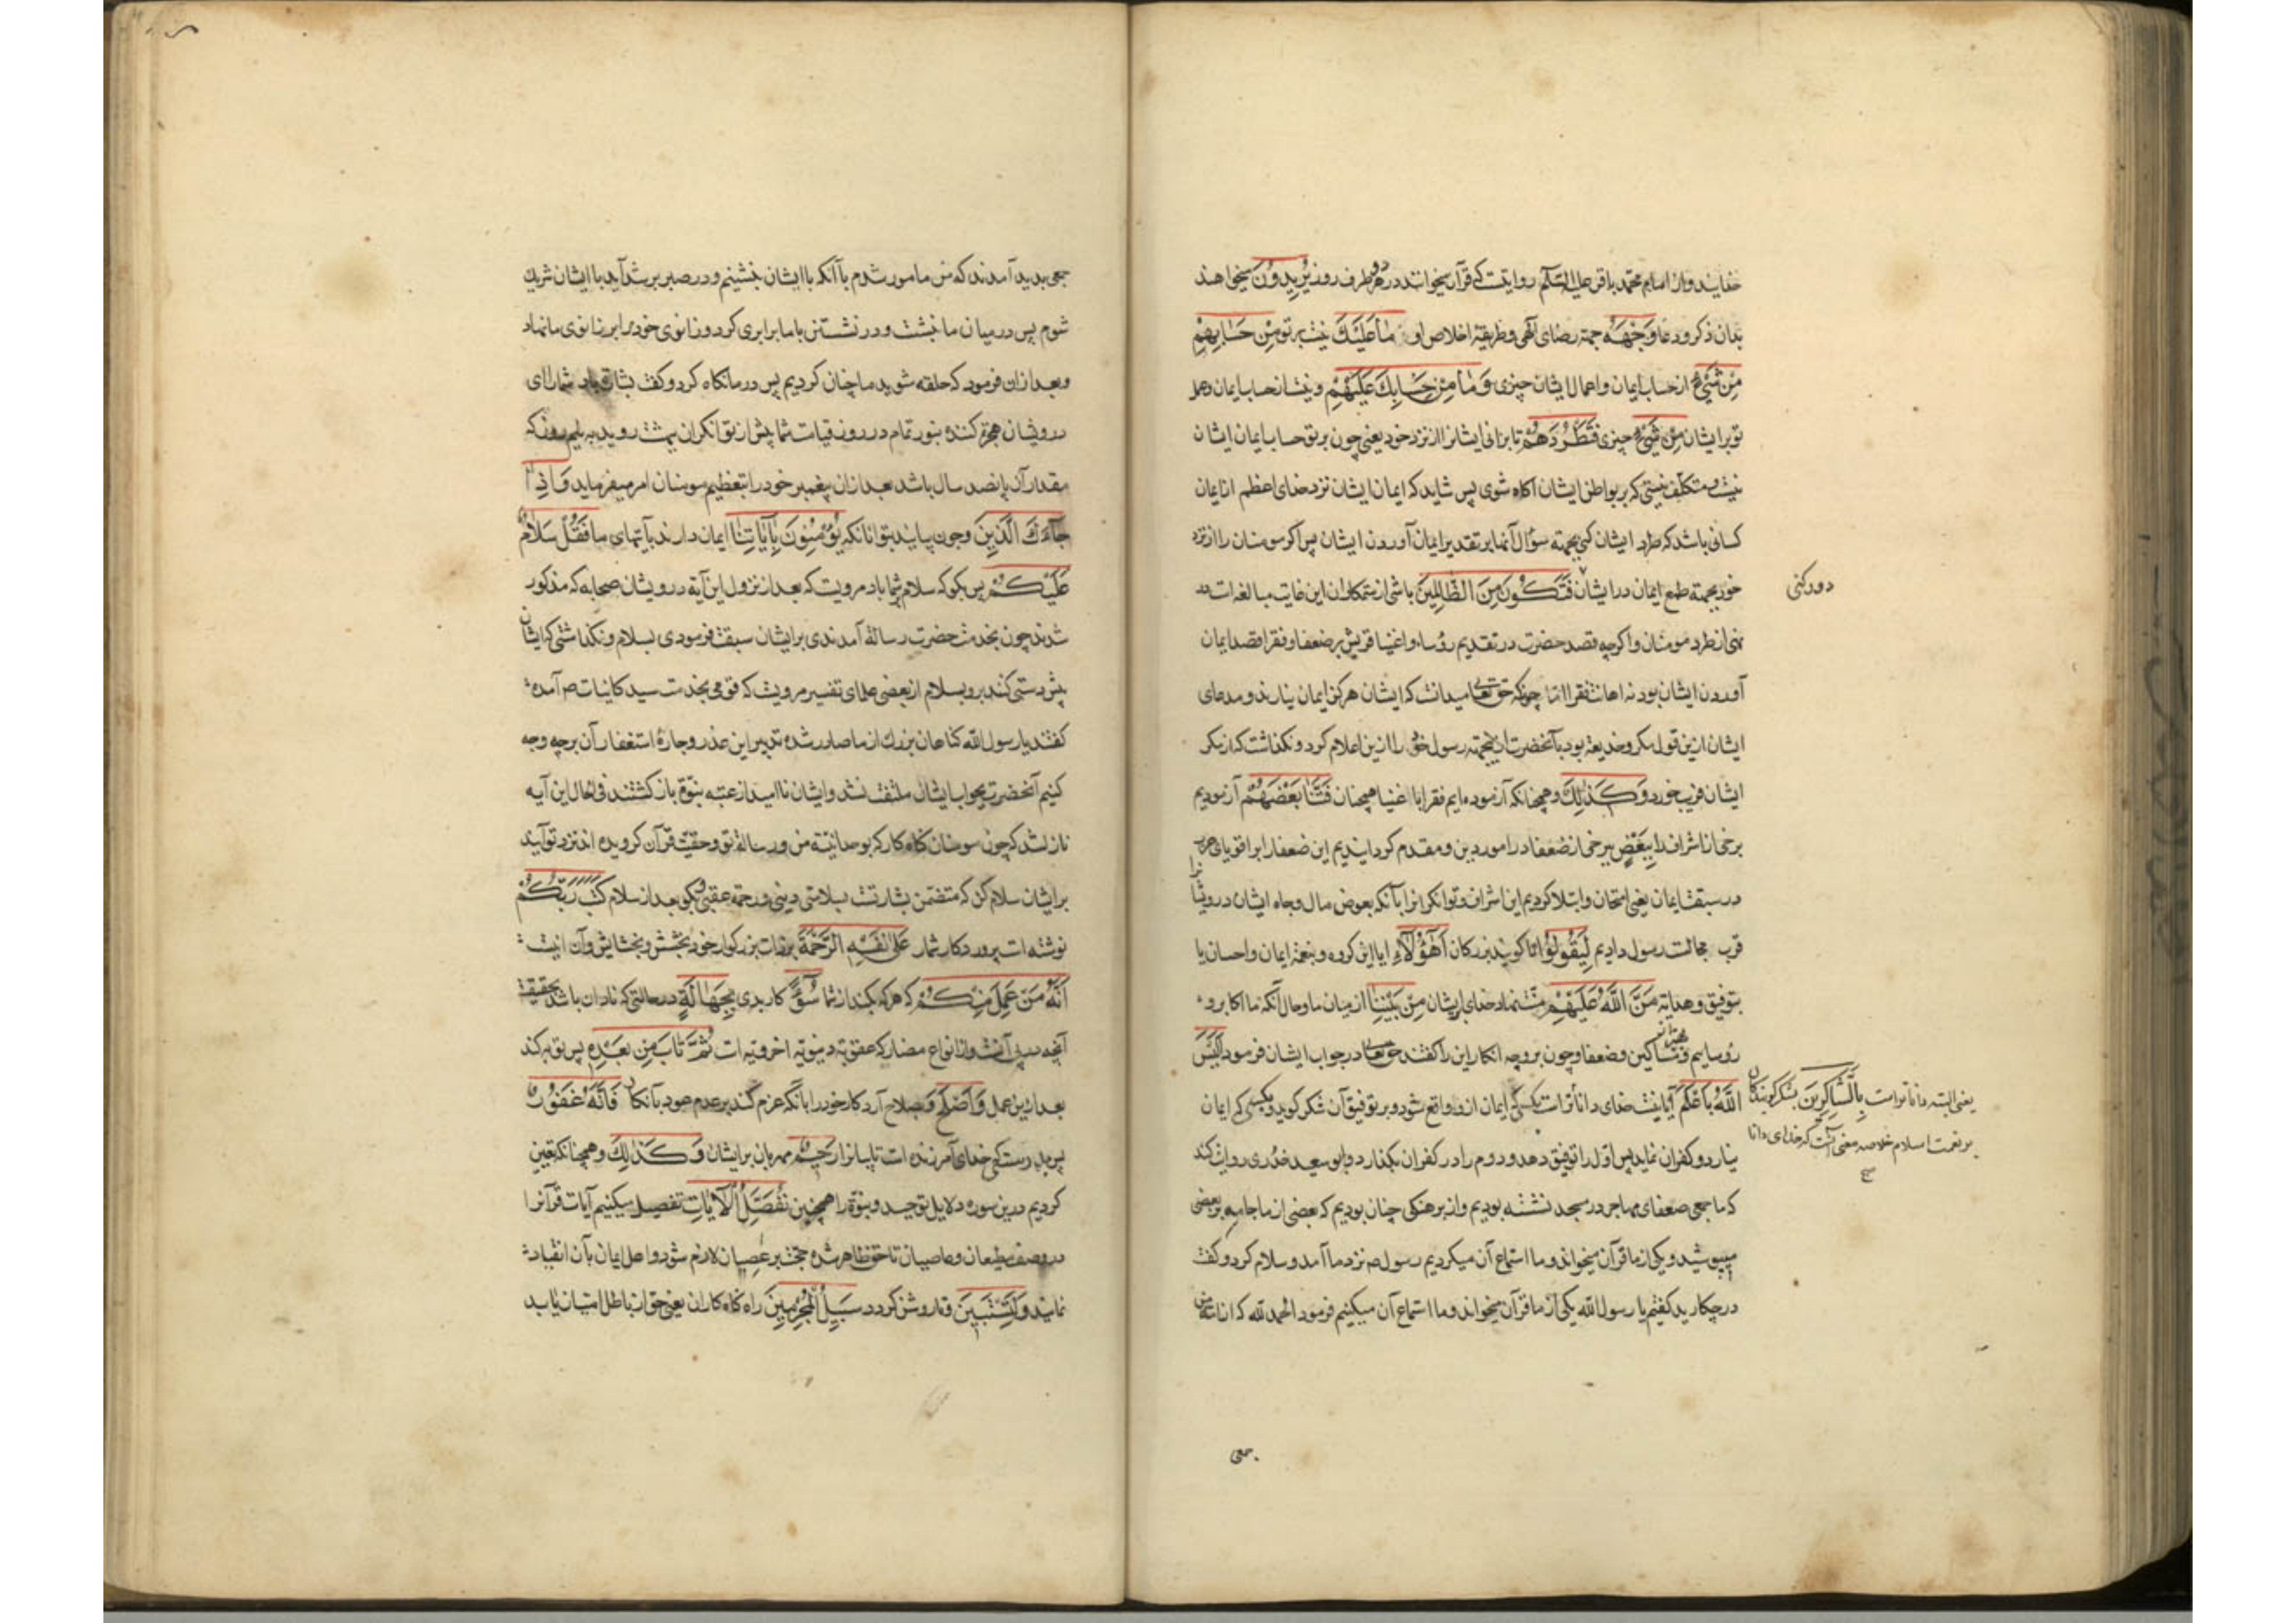 خفایند و از امام محمد باقر علیه السلام روایتست که قرآن میخوانند در هر دو طرف روز یُرِیدُونَ میخواهند
بدان ذکر و دعا وَجْهَهُ جهته رضای آلهی و طریقهٔ اخلاص او مَا عَلَیْكَ نیست بر تو مِنْ حِسَابِهِمْ
مِنْ شَیْءٍ از حساب ایمان و اعمال ایشان چیزی وَمَا مِنْ حِسَابِكَ عَلَیْهِمْ و نیست از حساب ایمان و عمل
تو بر ایشان مِنْ شَیْءٍ چیزی فَتَطْرُدَهُمْ تا برانی ایشانرا از نزد خود یعنی چون بر تو حساب ایمان ایشان
نیست و متکلّف نیستی که بر بواطن ایشان آکاه شوی پس شاید که ایمان ایشان نزد خدای اعظم از ایمان
کسانی باشد که طرد ایشان کنی بجهته سؤال آنها بر تقدیر ایمان آوردن ایشان پس اکر مومنان را از نزد
خود بجهته طمع ایمان در ایشان فَتَكُونَ مِنَ الظَّالِمِینَ باشی از ستمکاران این غایت مبالغه است در
دور کنی
نهی از طرد مومنان و اکرچه قصد حضرت در تقدیم رؤساء و اغنیا قریش بر ضعفا و فقرا قصد ایمان
آوردن ایشان بود نه اهانت فقرا اما چونکه حق تعالی میدانست که ایشان هرکز ایمان نیارند و مدعای
ایشان ازین قول مکر و خدیعة بود با آنحضرت ازینجهته رسول خود را ازین اعلام کرد و نکذاشت که از مکر
ایشان فریب خورد وَكَذٰلِكَ و همچنانکه آزموده‌ایم فقرا با اغنیا همچنان فَتَنَّا بَعْضَهُمْ آزمودیم
برخی از اشراف را بِبَعْضٍ ببرخی از ضعفا در امور دین و مقدم کردانیدیم این ضعفا را بر اقویای
در سبقت ایمان یعنی امتحان و ابتلا کردیم این اشراف و توانکرانرا بآنکه بعوض مال و جاه ایشان درویشانرا
قرب مجالست رسول دادیم لِیَقُولُوا تا کویند بزرکان أَهٰؤُلَاءِ ایا این کروه و بنعمة ایمان و احسان یا
بتوفیق و هدایة مَنَّ اللَّهُ عَلَیْهِمْ منّت نهاد خدای بر ایشان مِنْ بَیْنِنَا از میان ما و حال آنکه ما اکابر و
رؤساییم و مساکین و ضعفا و چون بر وجه انکار این را کفتند حق تعالی در جواب ایشان فرمود أَلَیْسَ
اللَّهُ بِأَعْلَمَ آیا نیست خدای دانا‌تر است بکسی که ایمان ازو واقع شود و بر توفیق آن شکر کوید و بکسی که ایمان
بِالشَّاكِرِینَ بشکر کویندکان یعنی البته داناتر است
بر نعمت اسلام خلاصه معنی آنست که خدای دانا
صح
نیارد و کفران نماید پس اوّل را توفیق دهد و دوم را در کفران بکذارد و ابو سعید خدری روایت کند
که ما جمعی ضعفای مهاجر در مسجد نشسته بودیم و از برهنکی چنان بودیم که بعضی از ما جامه بر بعضی
میپوشید و یکی از ما قرآن میخواند و ما استماع آن میکردیم رسول صه نزد ما آمد و سلام کرد و کفت
در چکارید کفتیم یا رسول الله یکی از ما قرآن میخواند و ما استماع آن میکنیم فرمود الحمد لله که از امّة من
جمعی
جمعی پدید آمدند که من مامور شدم بآنکه با ایشان بنشینم و در صبر بر شداید با ایشان شریك
شوم پس در میان ما بنشست و در نشستن با ما برابری کرد و زانوی خود برابر زانوی ما نهاد
و بعد ازان فرمود که حلقه شوید ما چنان کردیم پس در ما نکاه کرد و کفت بشارة باد شما را ای
درویشان هجرة کننده بنور تمام در روز قیامت شما پیش از توانکران ببهشت روید به نیم روز که
مقدار آن پانصد سال باشد بعد ازان پیغمبر خود را بتعظیم مومنان امر میفرماید وَإِذَا
جَاءَكَ الَّذِینَ و چون بیایند بتو آنانکه یُؤْمِنُونَ بِآیَاتِنَا ایمان دارند بآیتهای ما فَقُلْ سَلَامٌ
عَلَیْكُمْ پس بکو که سلام بر شما باد مرویست که بعد از نزول این آیة درویشان صحابه که مذکور
شدند چون بخدمت حضرت رسالة آمدندی بر ایشان سبقت فرمودی بسلام و نکذاشتی که ایشان
پیش دستی کنند برو بسلام از بعضی علمای تفسیر مرویست که قومی بخدمت سید کاینات صه آمده
کفتند یا رسول الله کناهان بزرك از ما صادر شده تدبیر این عذر و چارهٔ استغفار آن بر چه وجه
کنیم آنحضرت بجواب ایشان ملتفت نشد و ایشان ناامید از عتبه نبوّة باز کشتند فی الحال این آیه
نازل شد که چون مومنان کناه کار که بوحدانیّة من و رسالة تو و حقیّت قرآن کرویده اند نزد تو آیند
بر ایشان سلام کن که متضمن بشارتست بسلامتی دینی و رحمة عقبی و بکو بعد از سلام كَتَبَ رَبُّكُمْ
نوشته است پروردکار شما عَلَىٰ نَفْسِهِ الرَّحْمَةَ بر ذات بزرکوار خود بخشش و بخشایش و آن اینست
أَنَّهُ مَنْ عَمِلَ مِنْكُمْ که هر که بکند از شما سُوءً کار بدی بِجَهَالَةٍ در حالتی که نادان باشد بحقیقت
آنچه در پی آنست و از انواع مضار که عقوبة دنیویّه اخرویّه است ثُمَّ تَابَ مِنْ بَعْدِهِ پس توبه کند
بعد ازین عمل وَأَصْلَحَ و بصلاح آرد کار خود را بآنکه عزم کند بر عدم عود بآن کار فَأَنَّهُ غَفُورٌ
پس بدرستی که خدای آمرزنده است تایبانرا رَحِیمٌ مهربان بر ایشان وَكَذٰلِكَ و همچنانکه تعیین
کردیم درین سوره دلایل توحید و نبوّة را همچنین نُفَصِّلُ الْآیَاتِ تفصیل میکنیم آیات قرآنرا
در وصف مطیعان و عاصیان تا حق ظاهر شده حجّت بر عصیان لازم شود و اهل ایمان بآن انقیاد
نمایند وَلِتَسْتَبِینَ و تا روشن کردد سَبِیلُ الْمُجْرِمِینَ راه کناه کاران یعنی حق از باطل امتیاز یابد